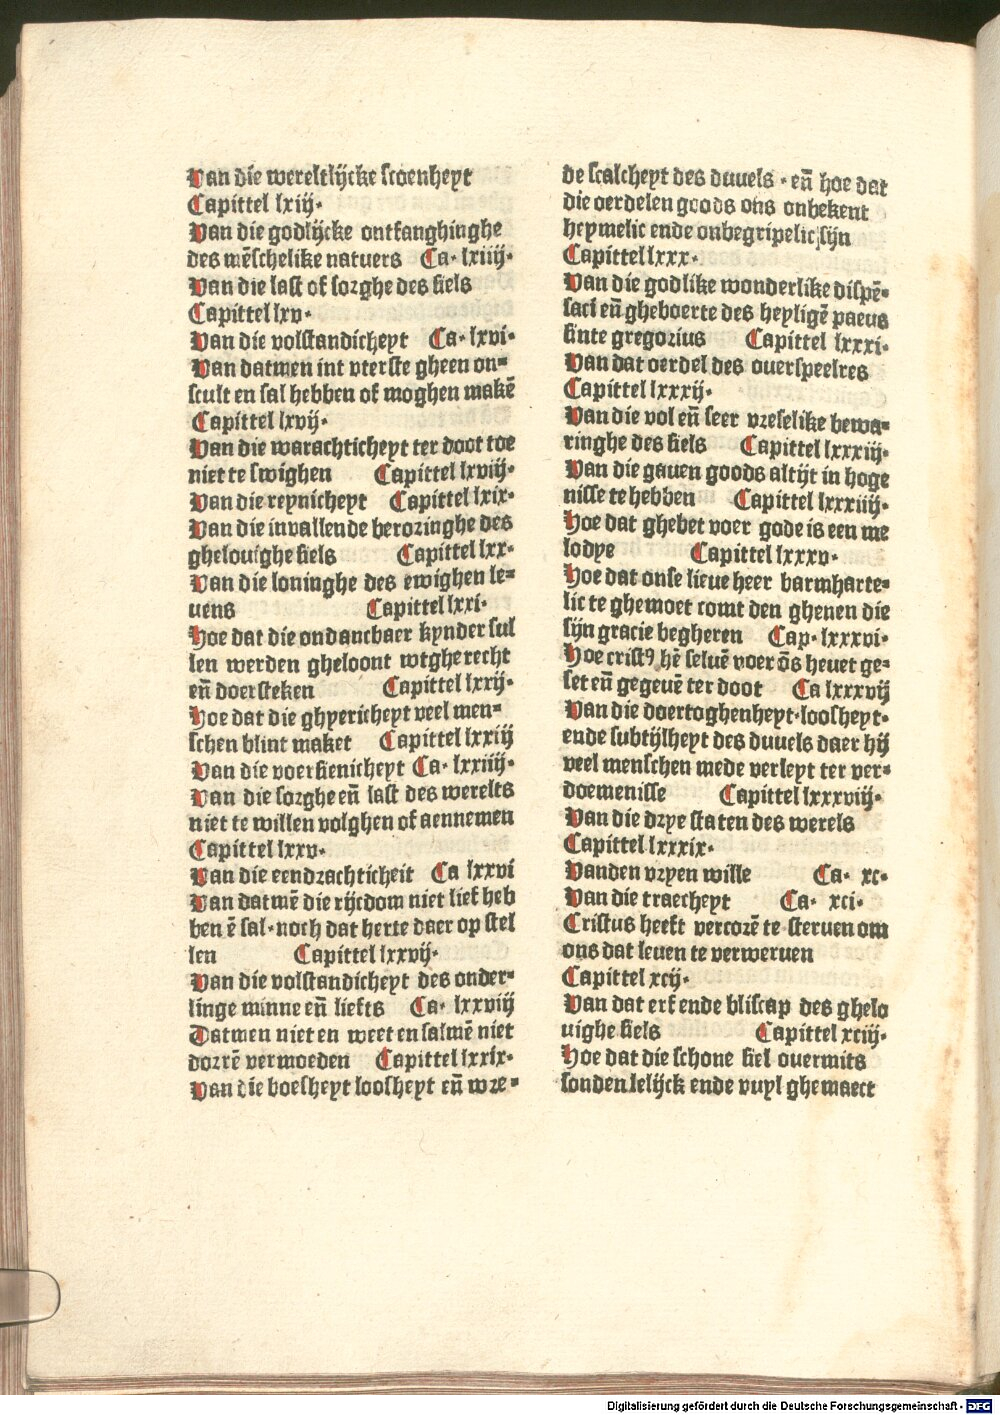 Van die wereltlijcke scoenheyt
Capittel lxiij.
Van die godlijcke ontfanghinghe
des mēschelike natuers Ca. lxiiij.
Van die last of sorghe des siels
Capittel lxv.
Van die volstandicheyt Ca. lxvi.
Van datmen int vterste gheen on-
scult en sal hebben of moghen makē
Capittel lxvij.
Van die warachticheyt ter doot toe
niet te swighen Capittel lxviij.
Van die reynicheyt Capittel lxix.
Van die invallende beroringhe des
ghelouighe siels Capittel lxx.
Van die loninghe des ewighen le-
uens Capittel lxxi.
Hoe dat die ondancbaer kynder sul
len werden gheloont wtgherecht
eñ doersteken Capittel lxxij.
Hoe dat die ghyericheyt veel men-
schen blint maket Capittel lxxiij
Van die voersienicheyt Ca. lxxiiij.
Van die sorghe eñ last des werelts
niet te willen volghen of aennemen
Capittel lxxv.
Van die eendrachticheit Ca lxxvi
Van datmē die rijcdom niet lief heb
ben ē sal.noch dat herte daer op stel
len Capittel lxxvij.
Van die volstandicheyt des onder-
linge minne eñ liefts Ca. lxxviij
Datmen niet en weet en salmē niet
dorrē vermoeden Capittel lxxix.
Van die boesheyt loosheyt eñ wre-
de scalcheyt des duuels . eñ hoe dat
die oerdelen goods ons onbekent
heymelic ende onbegripelic sijn
Capittel lxxx.
Van die godlike wonderlike dispē-
saci eñ gheboerte des heyligē paeus
sinte gregorius Capittel lxxxi.
Van dat oerdel des ouerspeelres
Capittel lxxxij.
Van die vol eñ seer vreselike bewa-
ringhe des siels Capittel lxxxiij.
Van die gauen goods altijt in hoge
nisse te hebben Capittel lxxxiiij.
Hoe dat ghebet voer gode is een me
lodye Capittel lxxxv.
Hoe dat onse lieue heer barmharte-
lic te ghemoet comt den ghenen die
sijn gracie begheren Cap. lxxxvi.
Hoe cristꝰ hē seluē voer ōs heuet ge-
set eñ gegeuē ter doot Ca lxxxvij
Van die doertoghenheyt.loosheyt.
ende subtijlheyt des duuels daer hij
veel menschen mede verleyt ter ver-
doemenisse Capittel lxxxviij.
Van die drye staten des werels
Capittel lxxxix.
Vanden vryen wille Ca. xc.
Van die traecheyt Ca. xci.
Cristus heeft vercorē te steruen om
ons dat leuen te verweruen
Capittel xcij.
Van dat erf ende bliscap des ghelo
uighe siels Capittel xciij.
Hoe dat die schone siel ouermits
sonden lelijck ende vuyl ghemaect
Digitalisierung gefördert durch die Deutsche Forschungsgemeinschaft - DFG